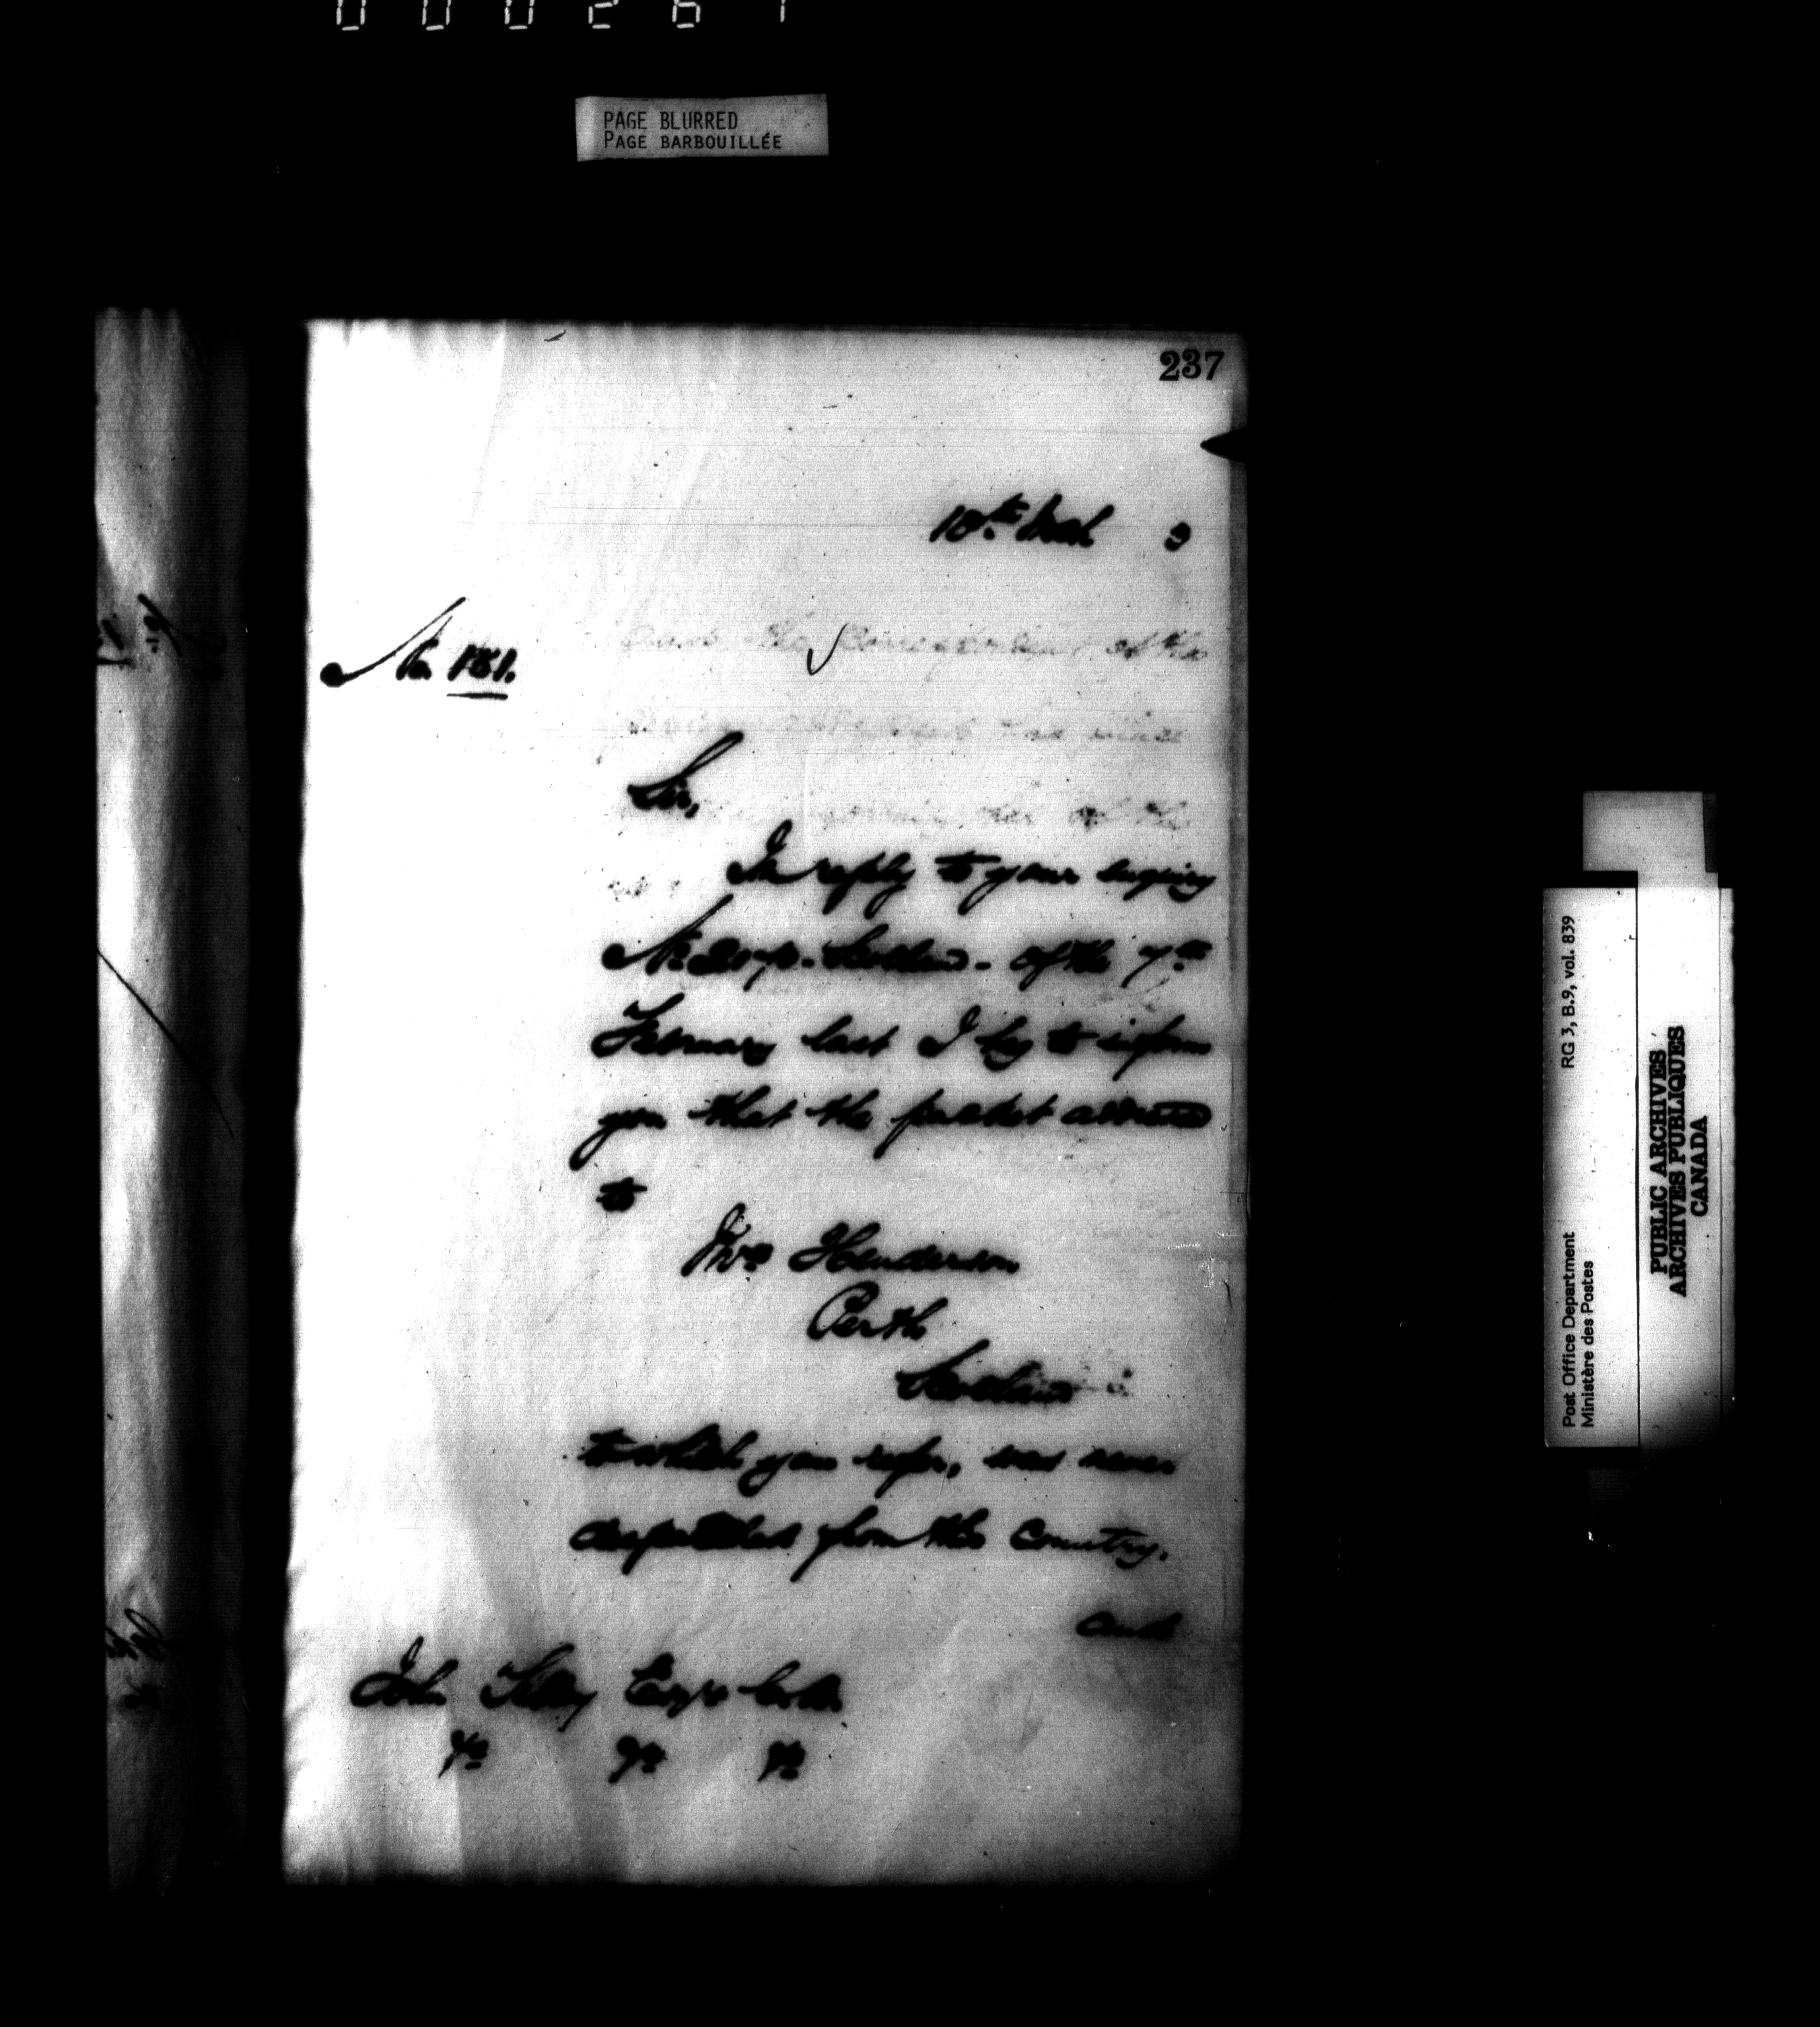 PAGE BLURRED
PAGE BARBOUILLÉE
237
10th Mch 3
No. 181.
Sir,
In reply to your enquiry
Scotland - of the 7th
February last I beg to inform
you that the packet addressed
to
Mrs Henderson
Perth
Scotland
to which you refer, was never
despatched from this Country.
and
John Tilley Esqre C.B.
&c &c &c
RG 3, B.9, vol. 839
Post Office Department
Ministère des Postes
PUBLIC ARCHIVES
ARCHIVES PUBLIQUES
CANADA